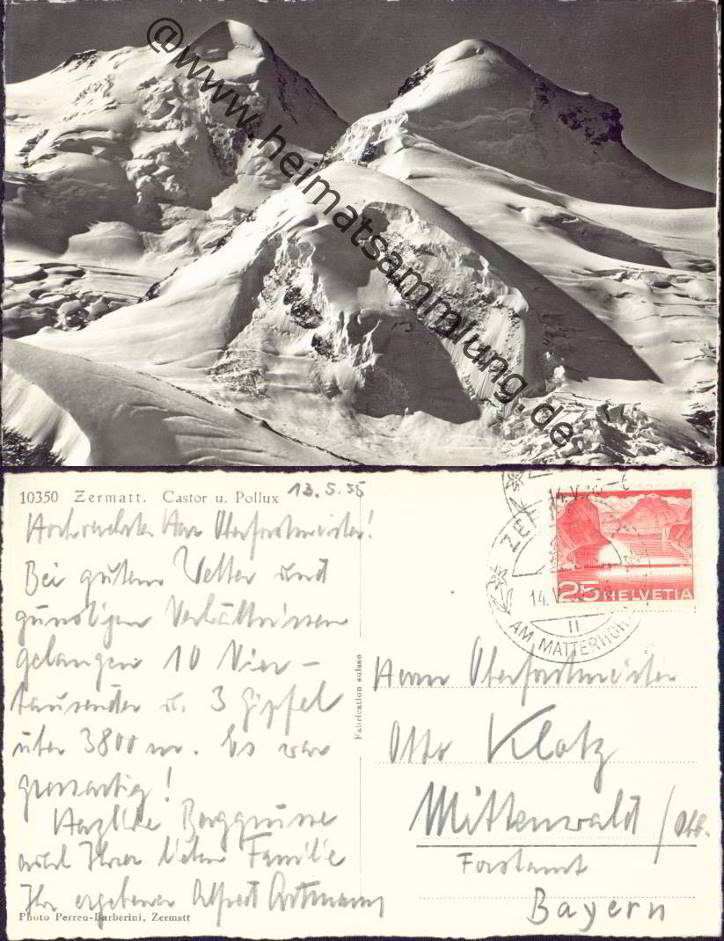 @www.heimatsammlung.de
10350 Zermatt. Castor u. Pollux 13.5.55
Hochverehrter Herr Oberforstmeister!
Bei gutem Wetter und
günstigen Verhältnissen
gelangen 10 Vier-
tausender u. 3 Gipfel
über 3800 m. Es war
grossartig!
Herzliche Berggrüsse
auch Ihrer lieben Familie
Ihr ergebener Alfred
Photo Perren-Barberini, Zermatt
Fabrication suisse
ZER
14.V.
AM MATTERHORN
II
25 HELVETIA
Herrn Oberforstmeister
Otto Klotz
Mittenwald / Obb.
Forstamt
Bayern